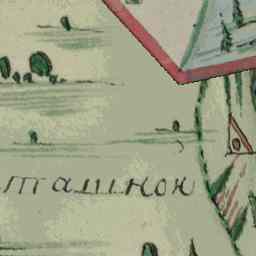 ташнок